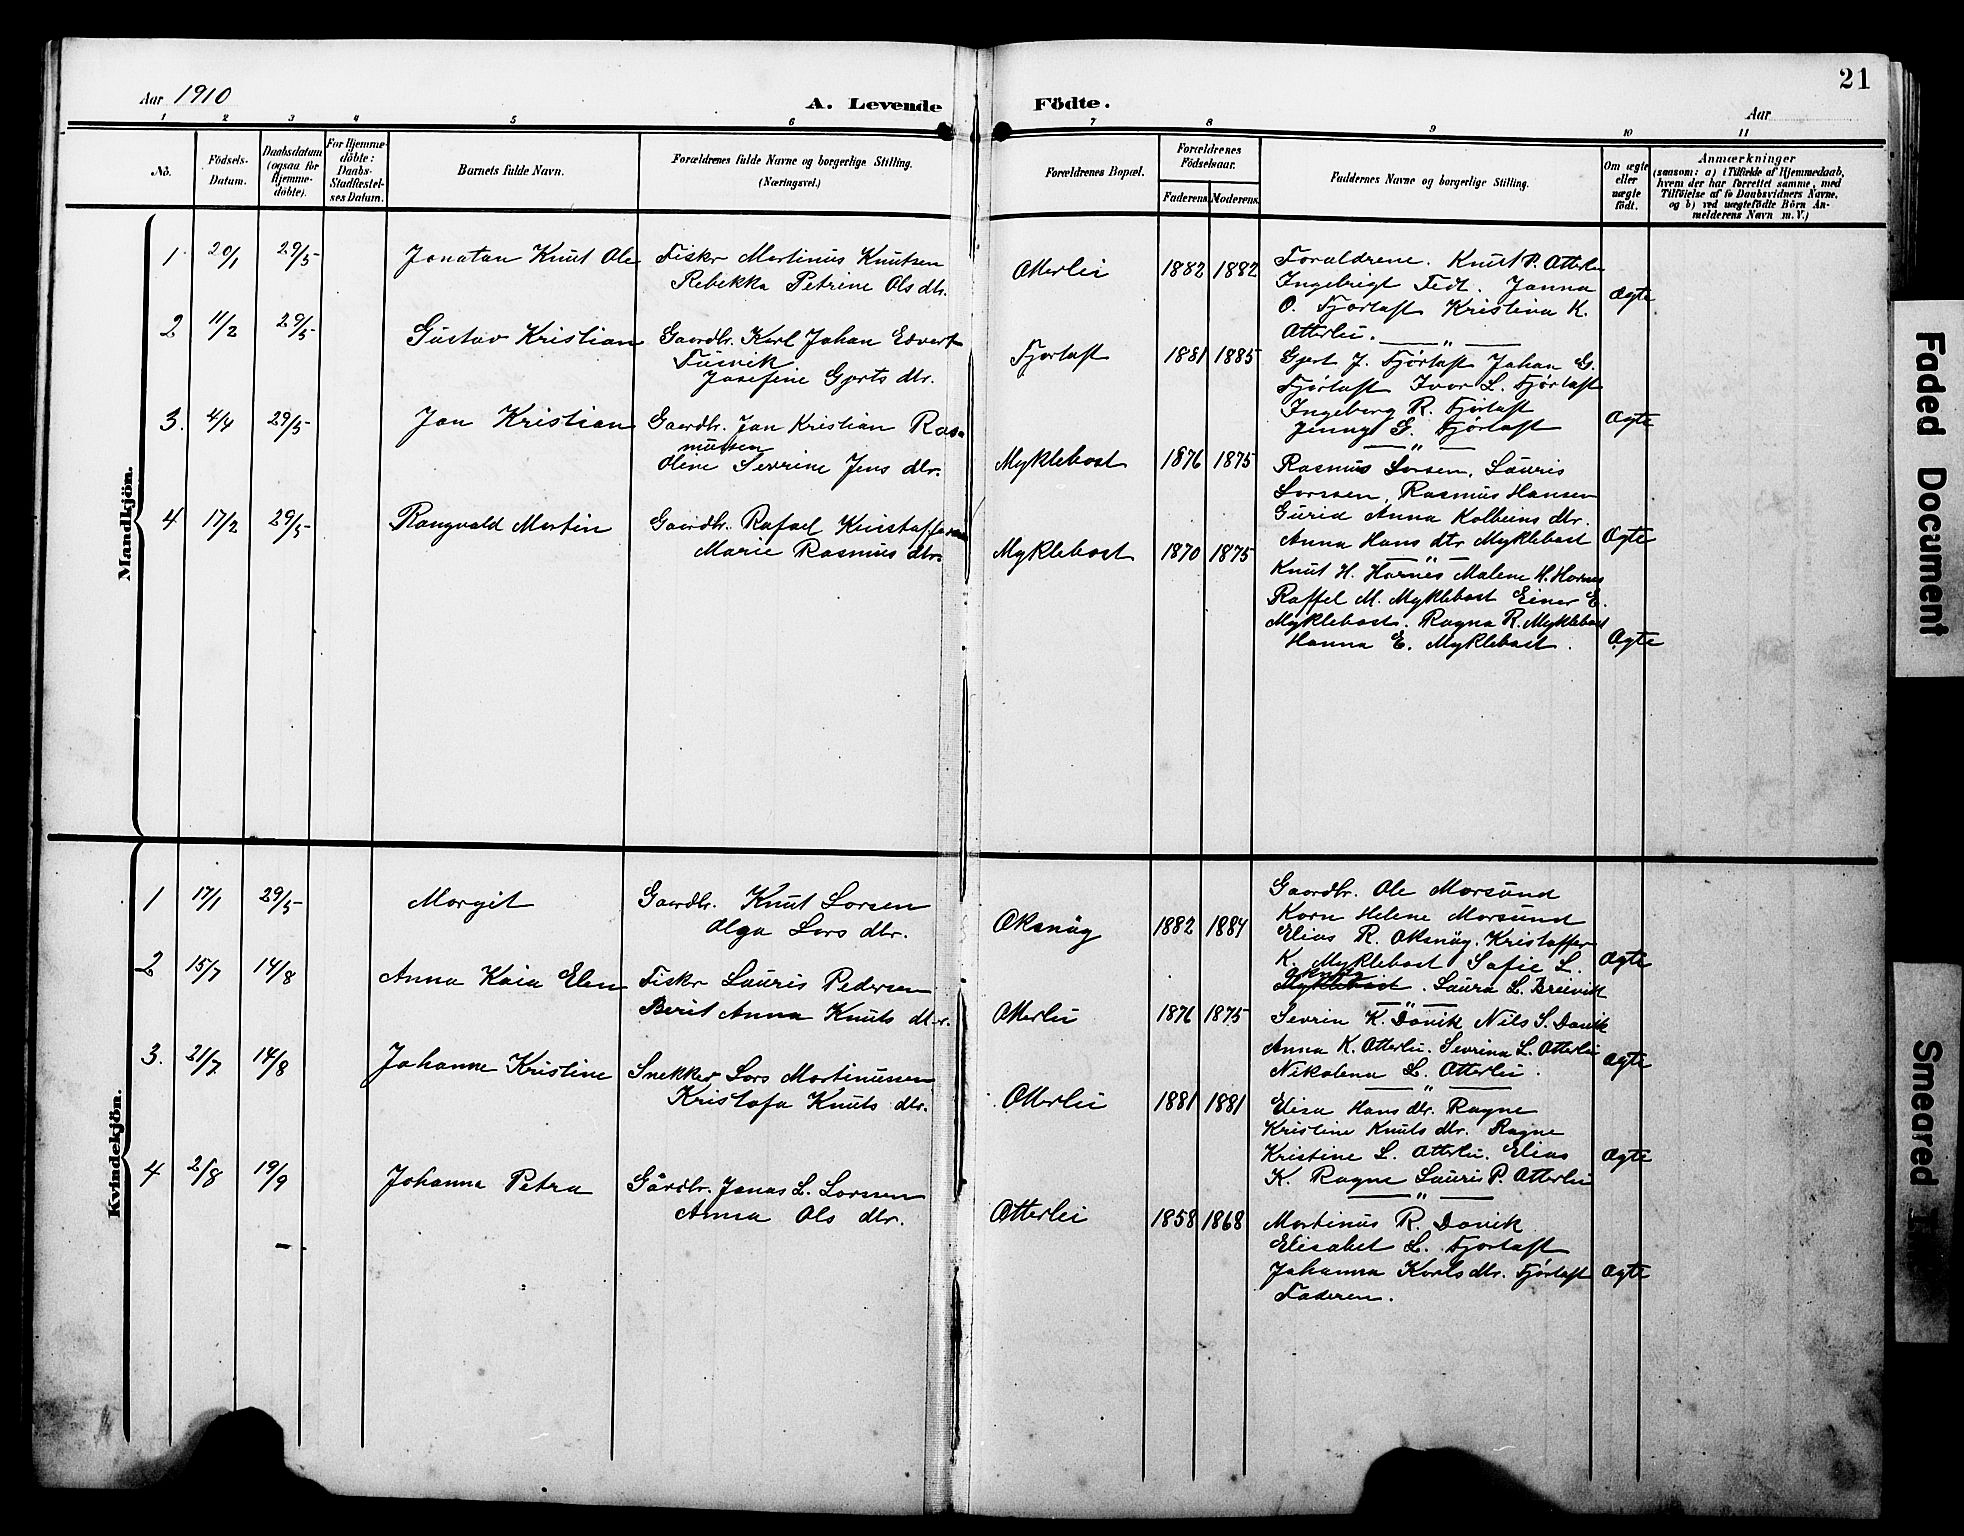 21
Aar 1910
A. Levende Födte.
Aar
1 2 3 4 5 6 7 8 9 10 11
No.
Födsels-
Datum.
Daabsdatum
(ogsaa for
Hjemme-
döbte).
For Hjemme-
döbte:
Daabs-
Stadfæstel-
ses Datum.
Barnets fulde Navn.
Forældrenes fulde Navne og borgerlige Stilling.
(Næringsvei.)
Forældrenes Bopæl.
Forældrenes
Födselsaar.
Faderens. Moderens.
Faddernes Navne og borgerlige Stilling.
Om ægte
eller
uægte
födt.
Anmærkninger
(saasom: a) i Tilfælde af Hjemmedaab,
hvem der har forrettet samme, med
Tilföielse af to Daabsvidners Navne,
og b) ved uægtefödte Börn An-
melderens Navn m. V.)
Mandkjön.
1 20/1 29/5 Jonatan Knut Ole
Fisker Martinus Knutsen
Rebekka Petrine Ols dtr.
Otterlei 1882 1882
Foraldrene. Knut P. Otterlei
Ingebrigt Fedt. Janna
O. Fjørtoft Kristina K.
Otterlei.
Ægte
2 11/2 29/5 Gustav Kristian
Gaardbr. Karl Johan Edvart
Tusvik
Josefine Gjerts dtr.
Fjørtoft 1881 1885
Gjert J. Fjørtoft Johan G.
Fjørtoft Ivar L. Fjørtoft
Ingeborg R. Fjørtoft
Jenny G. Fjørtoft
Ægte
3. 4/4 29/5 Jan Kristian
Gaardbr. Jan Kristian Ras-
mussen
Oline Sevrine Jens dtr.
Myklebost 1876 1875
Rasmus Larsen, Lauris
Larssen, Rasmus Hansen
Gurid Anna Kolbeins dtr.
Anna Hans dtr Myklebost
Ægte
4 17/2 29/5 Rangvald Martin
Gaardbr. Rafael Kristoffersen
Marie Rasmus dtr.
Myklebost 1870 1875
Knut H. Harnes Malene H. Harnes
Raffel M. Myklebost Einer E.
Myklebost. Ragna R. Myklebost
Hanna E. Myklebost.
Ægte
Kvindekjön.
1 17/1 29/5 Margit
Gaardbr. Knut Larsen
Olga Lars dtr.
Oksnøy 1882 1884
Gaardbr. Ole Morsund
Karn Helene Morsund
Elias R. Oksnøy. Kristoffer
K. Myklebost Sofie L.
Oksnøy
Myklebost. Laura L. Breivik
Ægte
2 15/7 14/8 Anna Kaia Elen
Fisker Lauris Pedersen
Berit Anna Knuts dtr.
Otterlei 1876 1875
Sevrin K. Davik Nils S. Davik
Anna K. Otterlei. Sevrina L. Otterlei
Nikolena L. Otterlei.
Ægte
3. 21/7 14/8 Johanne Kristine
Snekker Lars Martinussen
Kristofa Knuts dtr.
Otterlei 1881 1881
Elisa Hans dtr. Rogne
Kristine Knuts dtr. Rogne
Kristine L. Otterlei. Elias
K. Rogne Lauris P. Otterlei
Ægte
4 2/8 19/9 Johanna Petra
Gårdbr. Jonas L. Larsen
Anna Ols dtr.
Otterlei 1858 1868
Martinus R. Davik
Elisabet L. Fjørtoft
Johanna Karls dtr. Fjørtoft
Faderen.
Ægte
Faded Document
Smeared